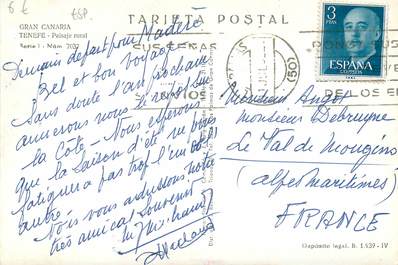 6 €
ESP.
TARJETA POSTAL
GRAN CANARIA
TENEFE - Paisaje rural
Serie I - Núm. 2022
3
PTAS
ESPAÑA
CORREOS
(50)
Demain départ pour Madère
Bel et bon voyage
Sans doute l'an prochain
aimerons nous
la Côte - Nous espérons
que la saison d'été ne vous
fatiguera pas trop l'un et l'
autre.
Nous vous adressons notre
très amical souvenir
Monsieur Angot
Monsieur Debruyne
Le Val de Mougins
(alpes maritimes)
FRANCE
Depósito legal. B. 1.539 - IV